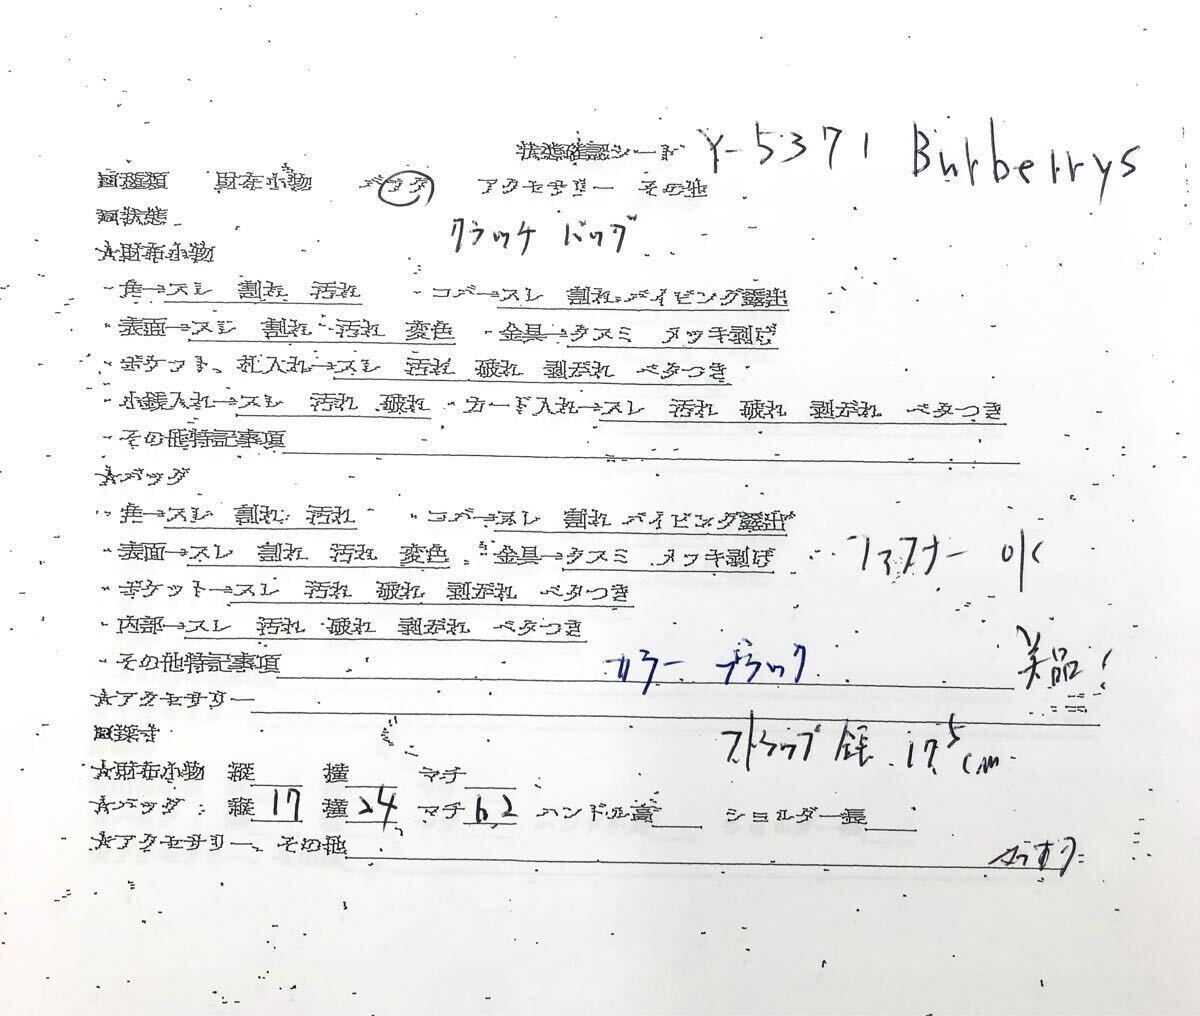 状態確認シート Y-5371 Burberrys
回種類 財布小物 バッグ アクセサリー その他
回状態
クラッチ バッグ
☆財布小物
・角→スレ 割れ 汚れ ・コバ→スレ 割れ パイピング露出
・表面→スレ 割れ 汚れ 変色 ・金具→クスミ メッキ剥げ
・ポケット、札入れ→スレ 汚れ 破れ 剥がれ ベタつき
・小銭入れ→スレ 汚れ 破れ ・カード入れ→スレ 汚れ 破れ 剥がれ ベタつき
・その他特記事項
☆バッグ
・角→スレ 割れ 汚れ ・コバ→スレ 割れ パイピング露出
・表面→スレ 割れ 汚れ 変色 ・金具→クスミ メッキ剥げ ファスナー OK
・ポケット→スレ 汚れ 破れ 剥がれ ベタつき
・内部→スレ 汚れ 破れ 剥がれ ベタつき
・その他特記事項 カラー ブラック 美品!
☆アクセサリー
回採寸 ストラップ 全長 17.5cm
☆財布小物 縦 横 マチ
☆バッグ : 縦 17 横 24 マチ 6.2 ハンドル高 ショルダー長
☆アクセサリー、その他